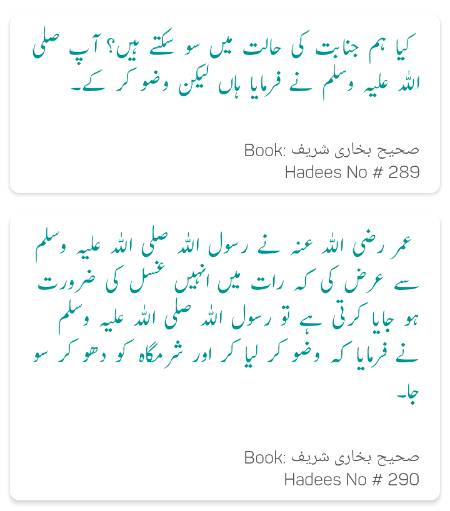 کیا ہم جنابت کی حالت میں سو سکتے ہیں؟ آپ صلی
اللہ علیہ وسلم نے فرمایا ہاں لیکن وضو کر کے۔
Book: صحیح بخاری شریف
Hadees No # 289
عمر رضی اللہ عنہ نے رسول اللہ صلی اللہ علیہ وسلم
سے عرض کی کہ رات میں انہیں غسل کی ضرورت
ہو جایا کرتی ہے تو رسول اللہ صلی اللہ علیہ وسلم
نے فرمایا کہ وضو کر لیا کر اور شرمگاہ کو دھو کر سو
جا۔
Book: صحیح بخاری شریف
Hadees No # 290